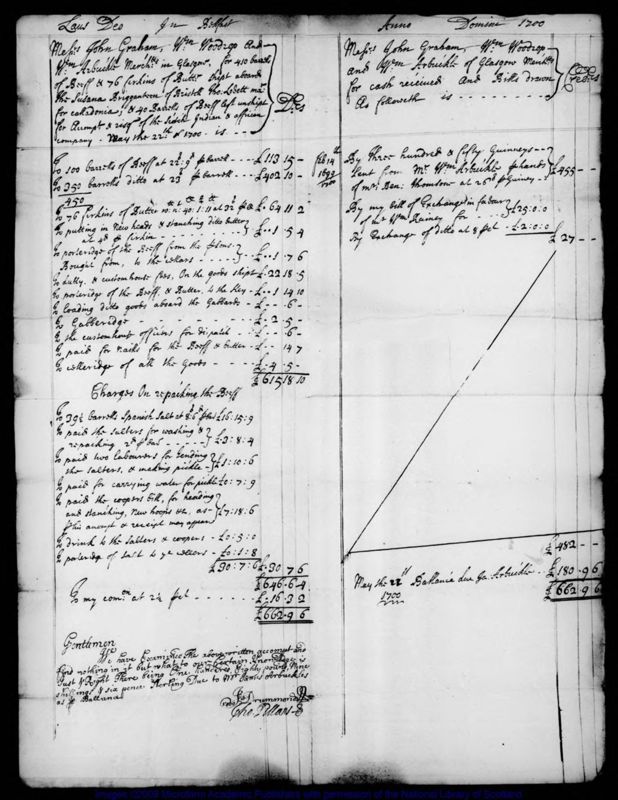 Laus Deo In Belfast
Mess:rs John Graham, Wm Woodrop And
Wm Arbuckle Merchts in Glasgow, for 410 barrels
of Beeff & 76 firkins of Butter shipt aboard
the Susana Briggenteen of Bristoll
for Caledonia; & 40 Barrells of Beeff left unshipt
for Accompt & risq of the Scotch Indian & Affrican
company. May the 22th 1700 is
Drs
To 100 barrells of Beeff at 22s. 9d p barrell - - - £113 15 -
To 350 barrells ditto at 23s p barrell - - - £402 10 -
450
To 76 firkins of Butter £ 64 11 2
To putting in New heads & stanching ditto butter
at 4d p firkin £ - 1 5 4
To porteridge of the Beeff from the
Bought from, to the cellars - - £ - 1 7 6
To duty & customhouse fees, On the goods shipt £ 22 18 5
To porteridge of the Beeff & Butter, to the Key - £ - 1 14 10
To loading ditto goods aboard the Gabbards - £ - - 6 -
To Gabberidge £ - 2 5 -
To the customhous officers for dispatch £ - - 6 -
To paid for nails for the Beeff & butter - £ - - 14 7
To cellaridge of all the Goods £ - 4 5 -
£ 615 18 10
Charges On repacking the Beeff
To 39½ barrells Spanish Salt at 8s:6d p bar £16:15:9
To paid the salters for washing &
repacking £3:8:4
To paid two labourers for tending
the salters, & making pickle - £1:10:6
To paid for carrying water for pickle £0:7:9
To paid the coopers bill, for heading
and stanching, New hoops &c, as
p his accompt & receipt may appear £7:18:6
To drink to the Salters & coopers - £0:5:0
To porteridge of Salt to ye cellers - £0:1:8
£30:7:6 £ - 30 7 6
£ 646 6 4
To my comon at 2½ p ct £ - 16 3 2
£ 662 9 6
Gentlemen
We have Examined The above written account And
find nothing in it but what to our certain knowledge is
Just & Right There being One hundred Eighty pounds Nine
shillings & six pence Sterling Due to Mr James Arbuckles
as p Ballance
Drummond
Tho: Pillans
Anno Domini 1700
Mess:rs John Graham, Wm Woodrop
and Wm Arbuckle of Glasgow Merchts
for cash received And Bills drawn
As followeth is
Crs
feb 14th
1699
1700
By Three hundred & fifty Guinneys
sent from Mr Wm Arbuckle p hands
of mr Ben: Thomson at 26s p Guiney £ 455 - -
By my bill of Exchange in favour
of Mr Wm Rainey for £25:0:0
By Exchange of ditto at 8 p ct £2:0:0
£ 27 - -
£ 482 - -
May the 22d Ballance due Ja: Arbuckle - - £ 180 9 6
1700
£ 662 9 6
Images ©2009 Microform Academic Publishers with permission of the National Library of Scotland